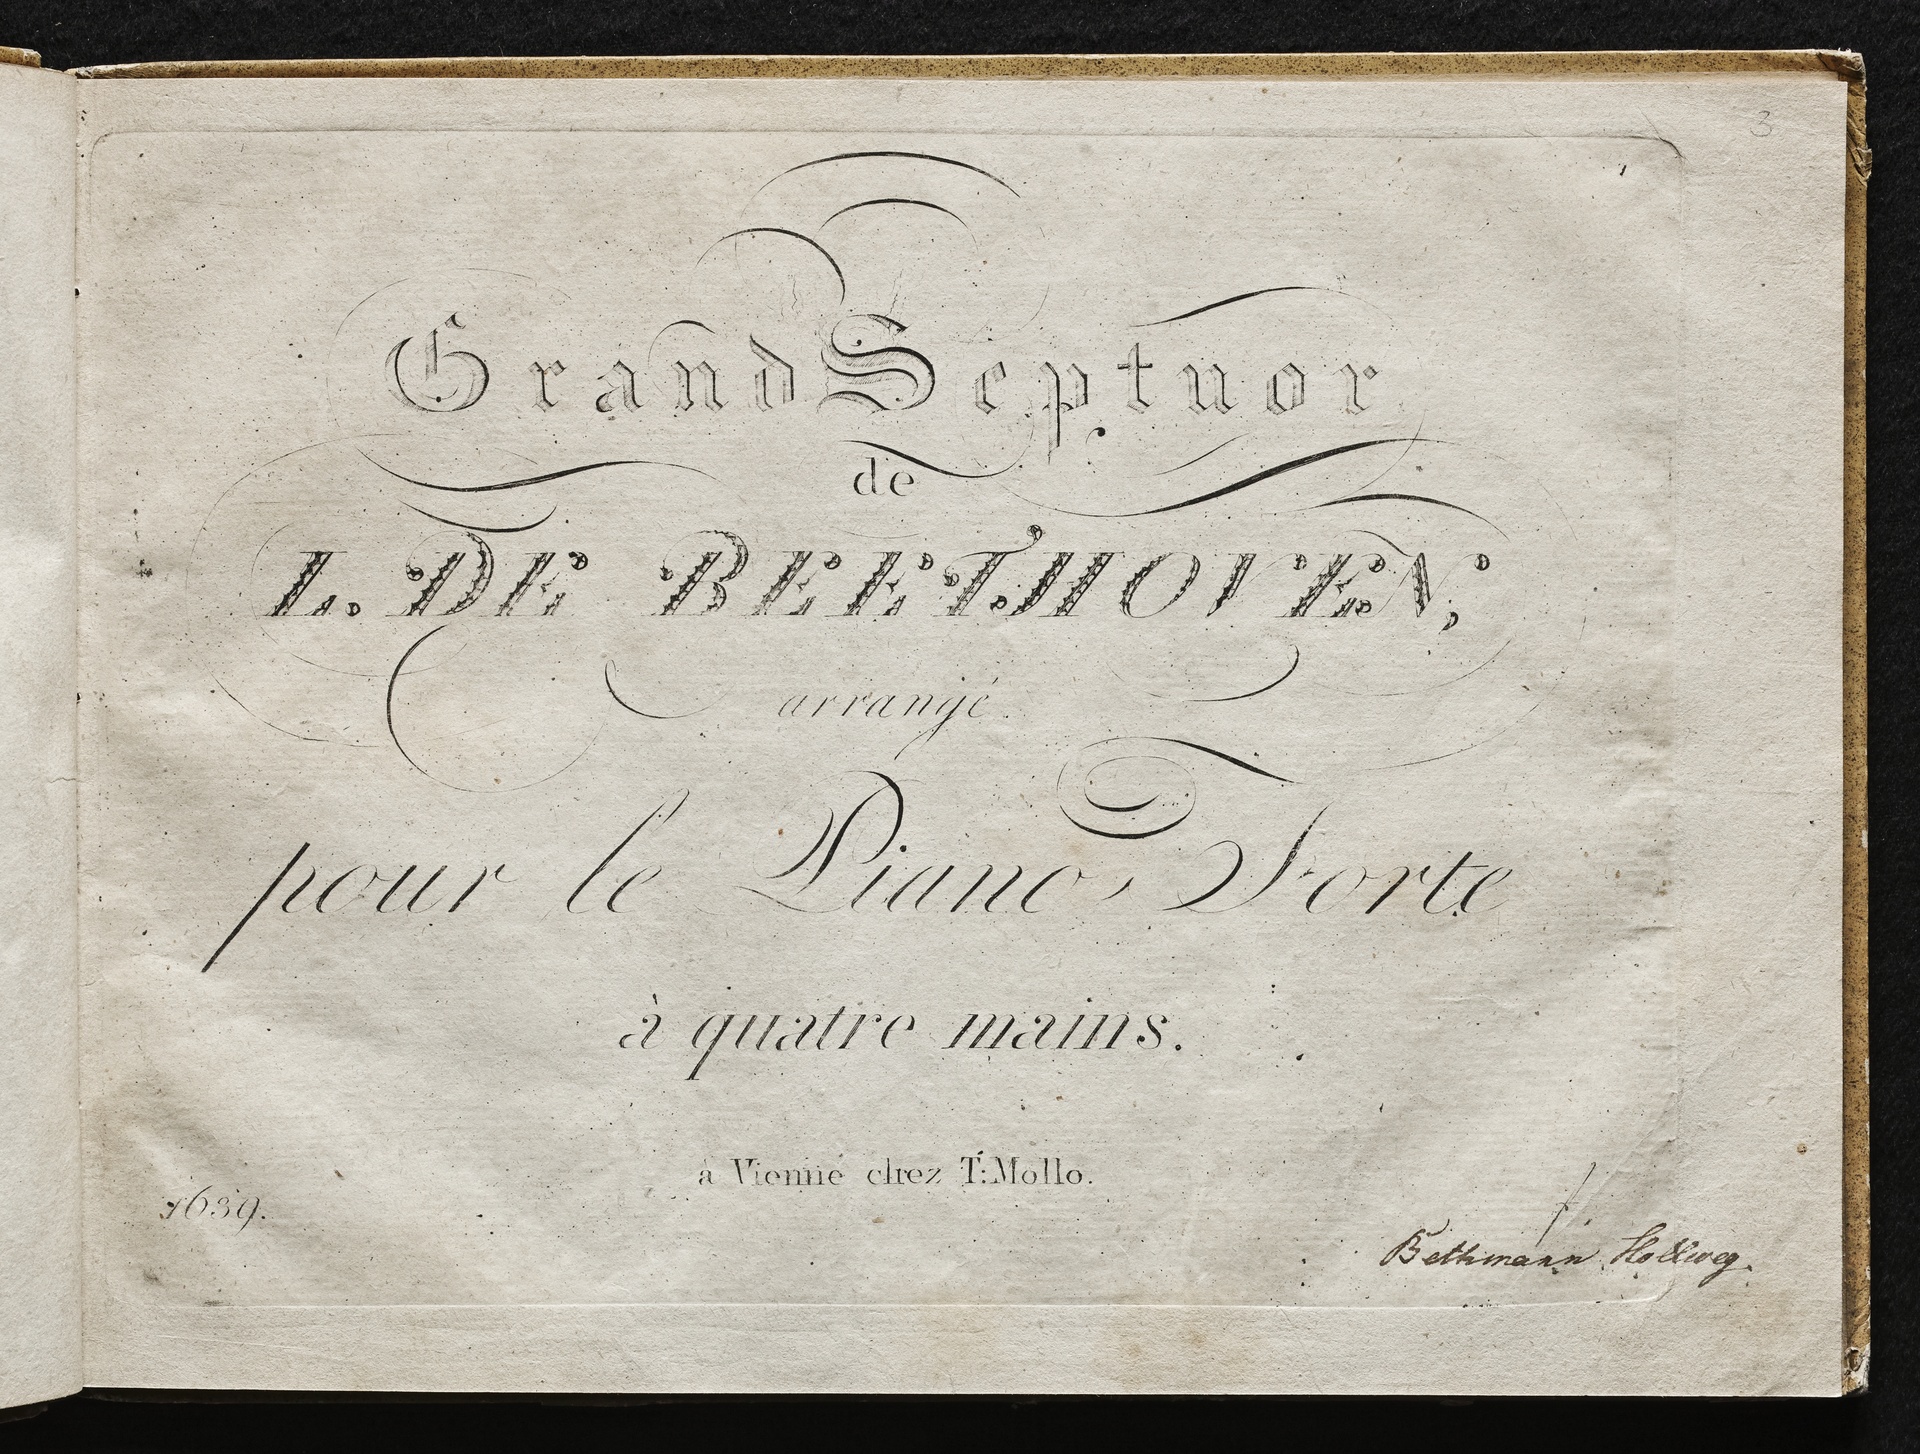 3
Grand Septuor
de
L. DE BEETHOVEN,
arrangé
pour le Piano-Forte
à quatre mains.
à Vienne chez T: Mollo.
1639.
f.
Bethmann Hollweg.